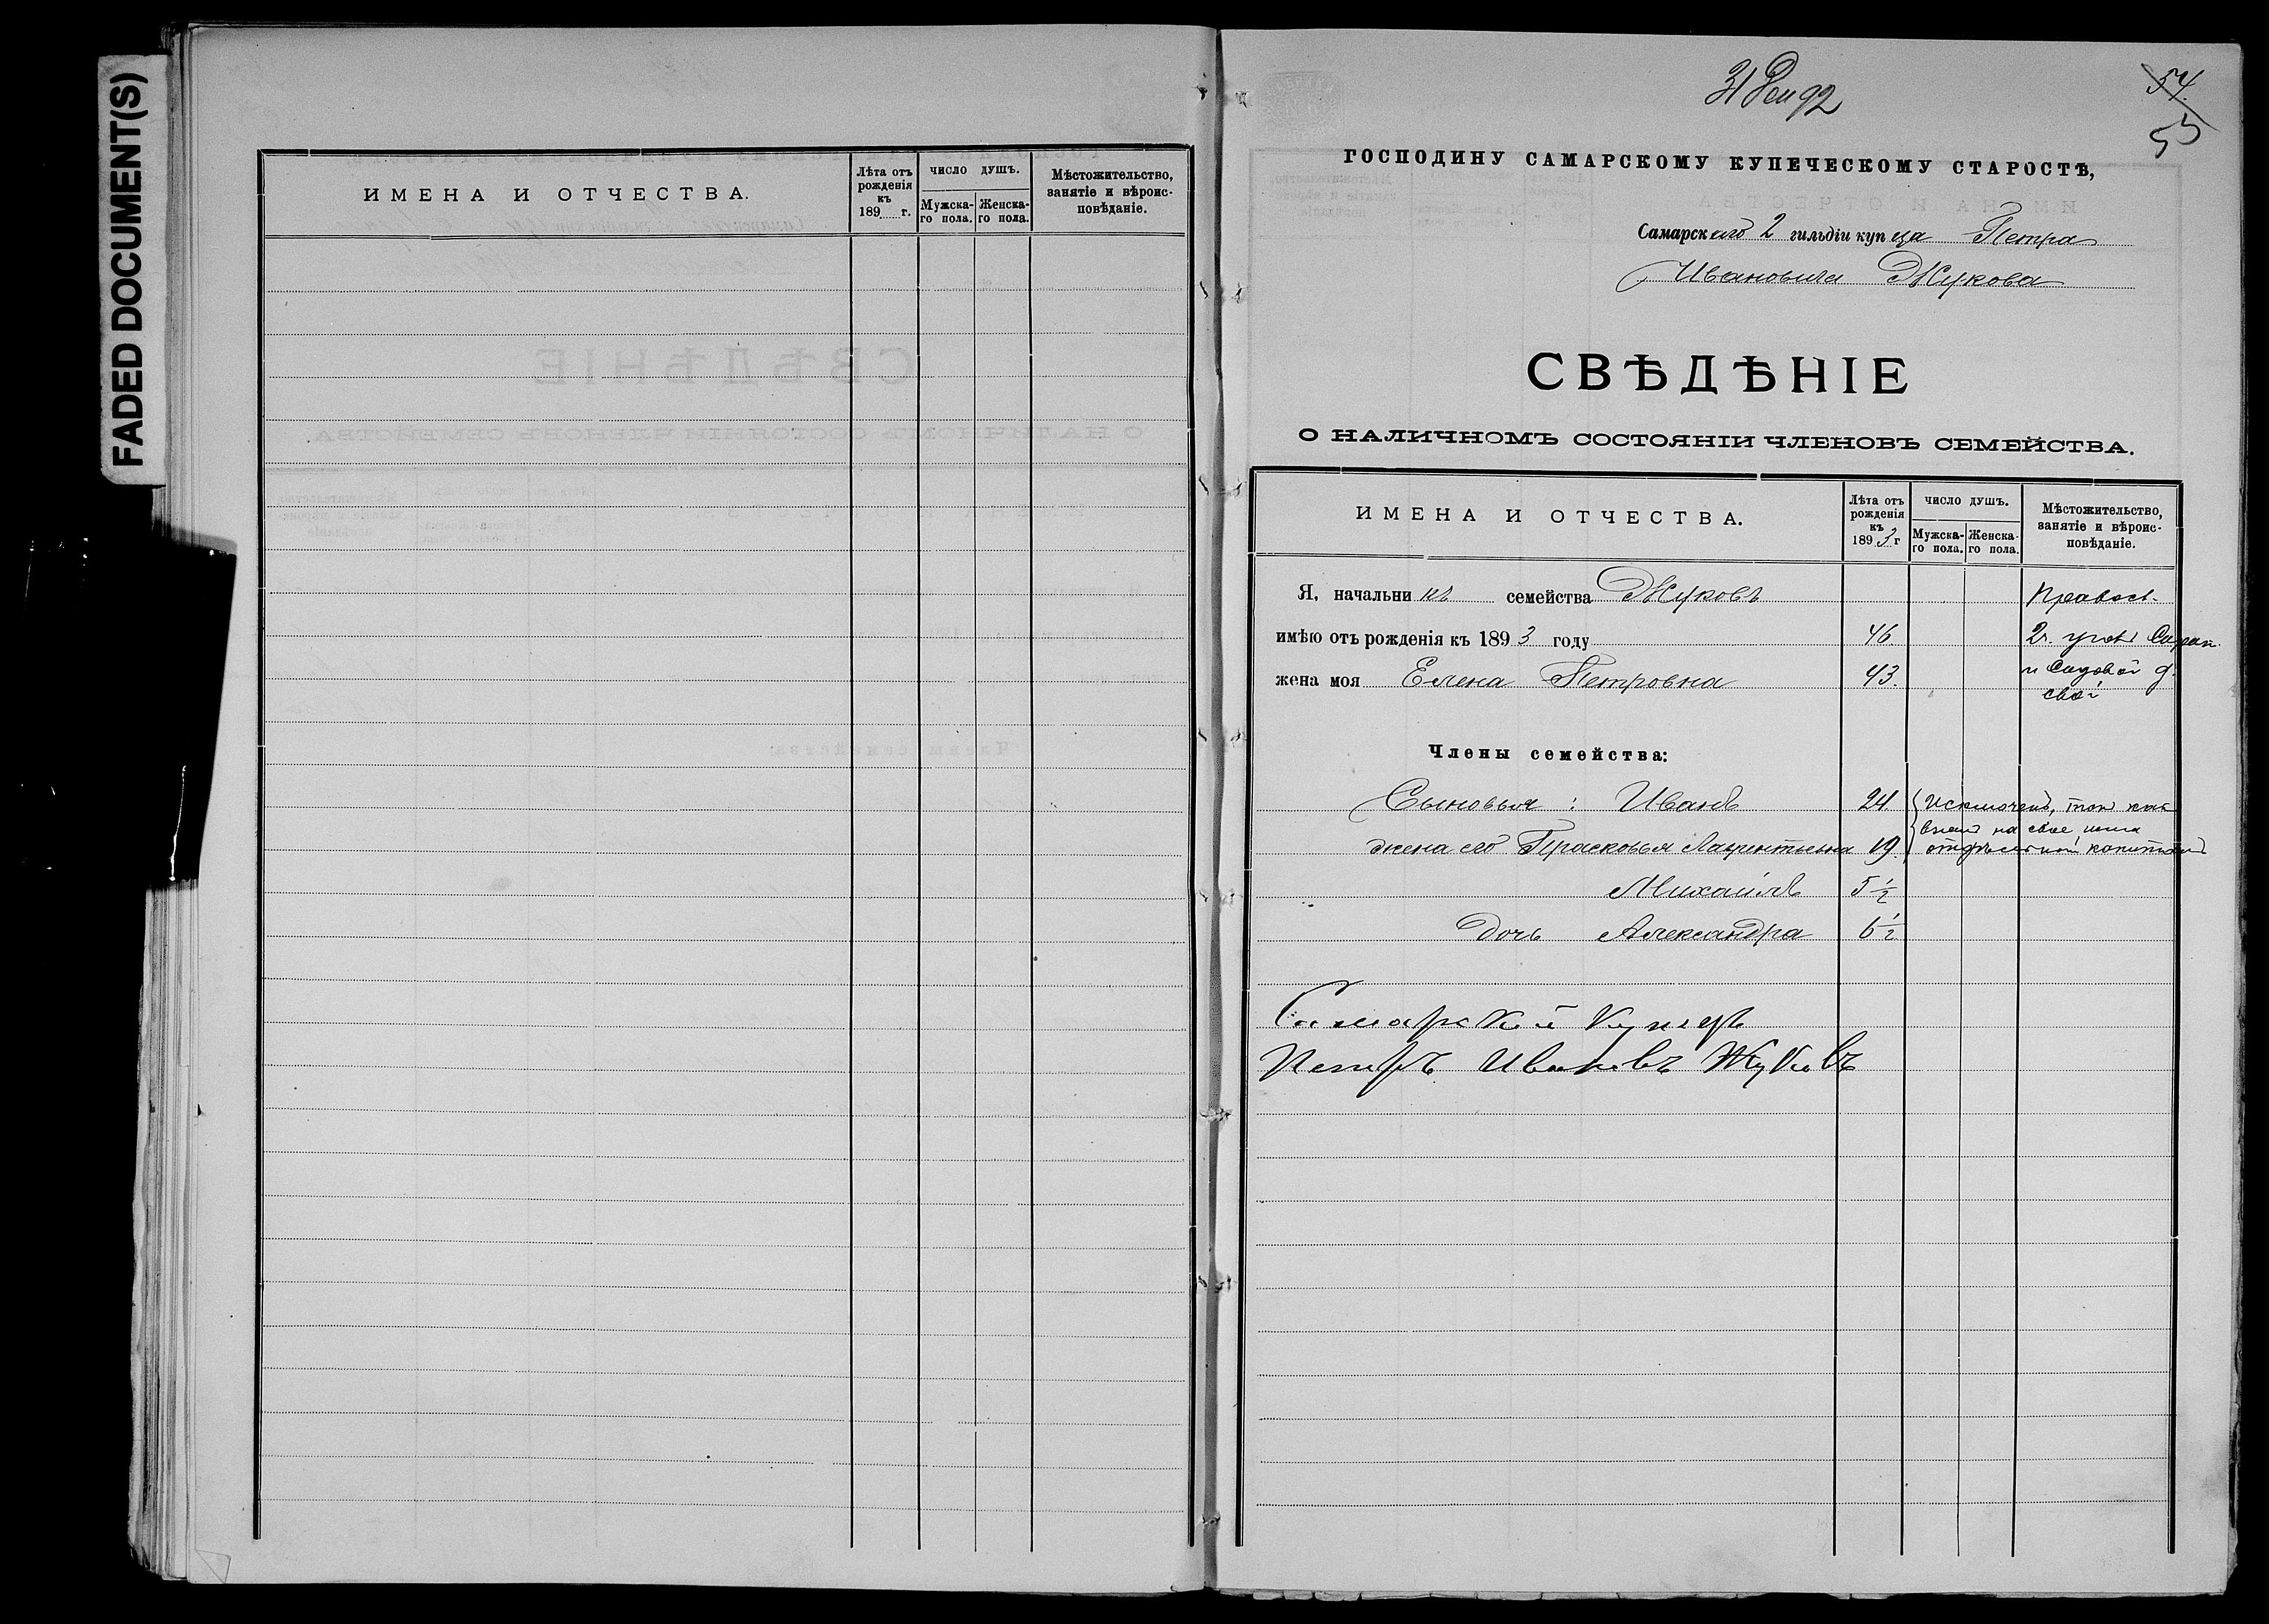 FADED DOCUMENT(S)
ИМЕНА И ОТЧЕСТВА.
Лѣта отъ рожденія къ 189 г.
ЧИСЛО ДУШЪ.
Мужска-го пола.
Женска-го пола.
Мѣстожительство, занятіе и вѣроис-повѣданіе.
31 Дек 92
54.
55
ГОСПОДИНУ САМАРСКОМУ КУПЕЧЕСКОМУ СТАРОСТѢ,
Самарскаго 2 гильдіи купца Петра
Ивановича Жукова
СВѢДѢНІЕ
О НАЛИЧНОМЪ СОСТОЯНІИ ЧЛЕНОВЪ СЕМЕЙСТВА.
ИМЕНА И ОТЧЕСТВА.
Лѣта отъ рожденія къ 1893 г
ЧИСЛО ДУШЪ.
Мужска-го пола.
Женска-го пола.
Мѣстожительство, занятіе и вѣроис-повѣданіе.
Я, начальникъ семейства Жуковъ Правосл.
имѣю отъ рожденія къ 1893 году 46 2ч. уголъ
жена моя Елена Петровна 43. и Садовой д.
свой
Члены семейства:
Сыновья: Иванъ 24. Исключенъ, такъ какъ
взялъ на свое имя
жена его Прасковья Лаврентьевна 19. отдѣльный капиталъ
Михаилъ 5 1/2
дочь Александра 6 1/2
Самарскій Купецъ
Петръ Ивановъ Жуковъ